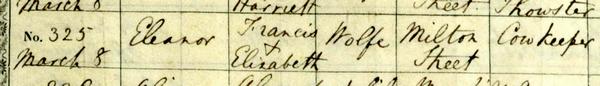 March 8 Harriett Street Thowster
No. 325 Eleanor Francis & Wolfe Milton Cowkeeper
March 8 Elizabeth Street